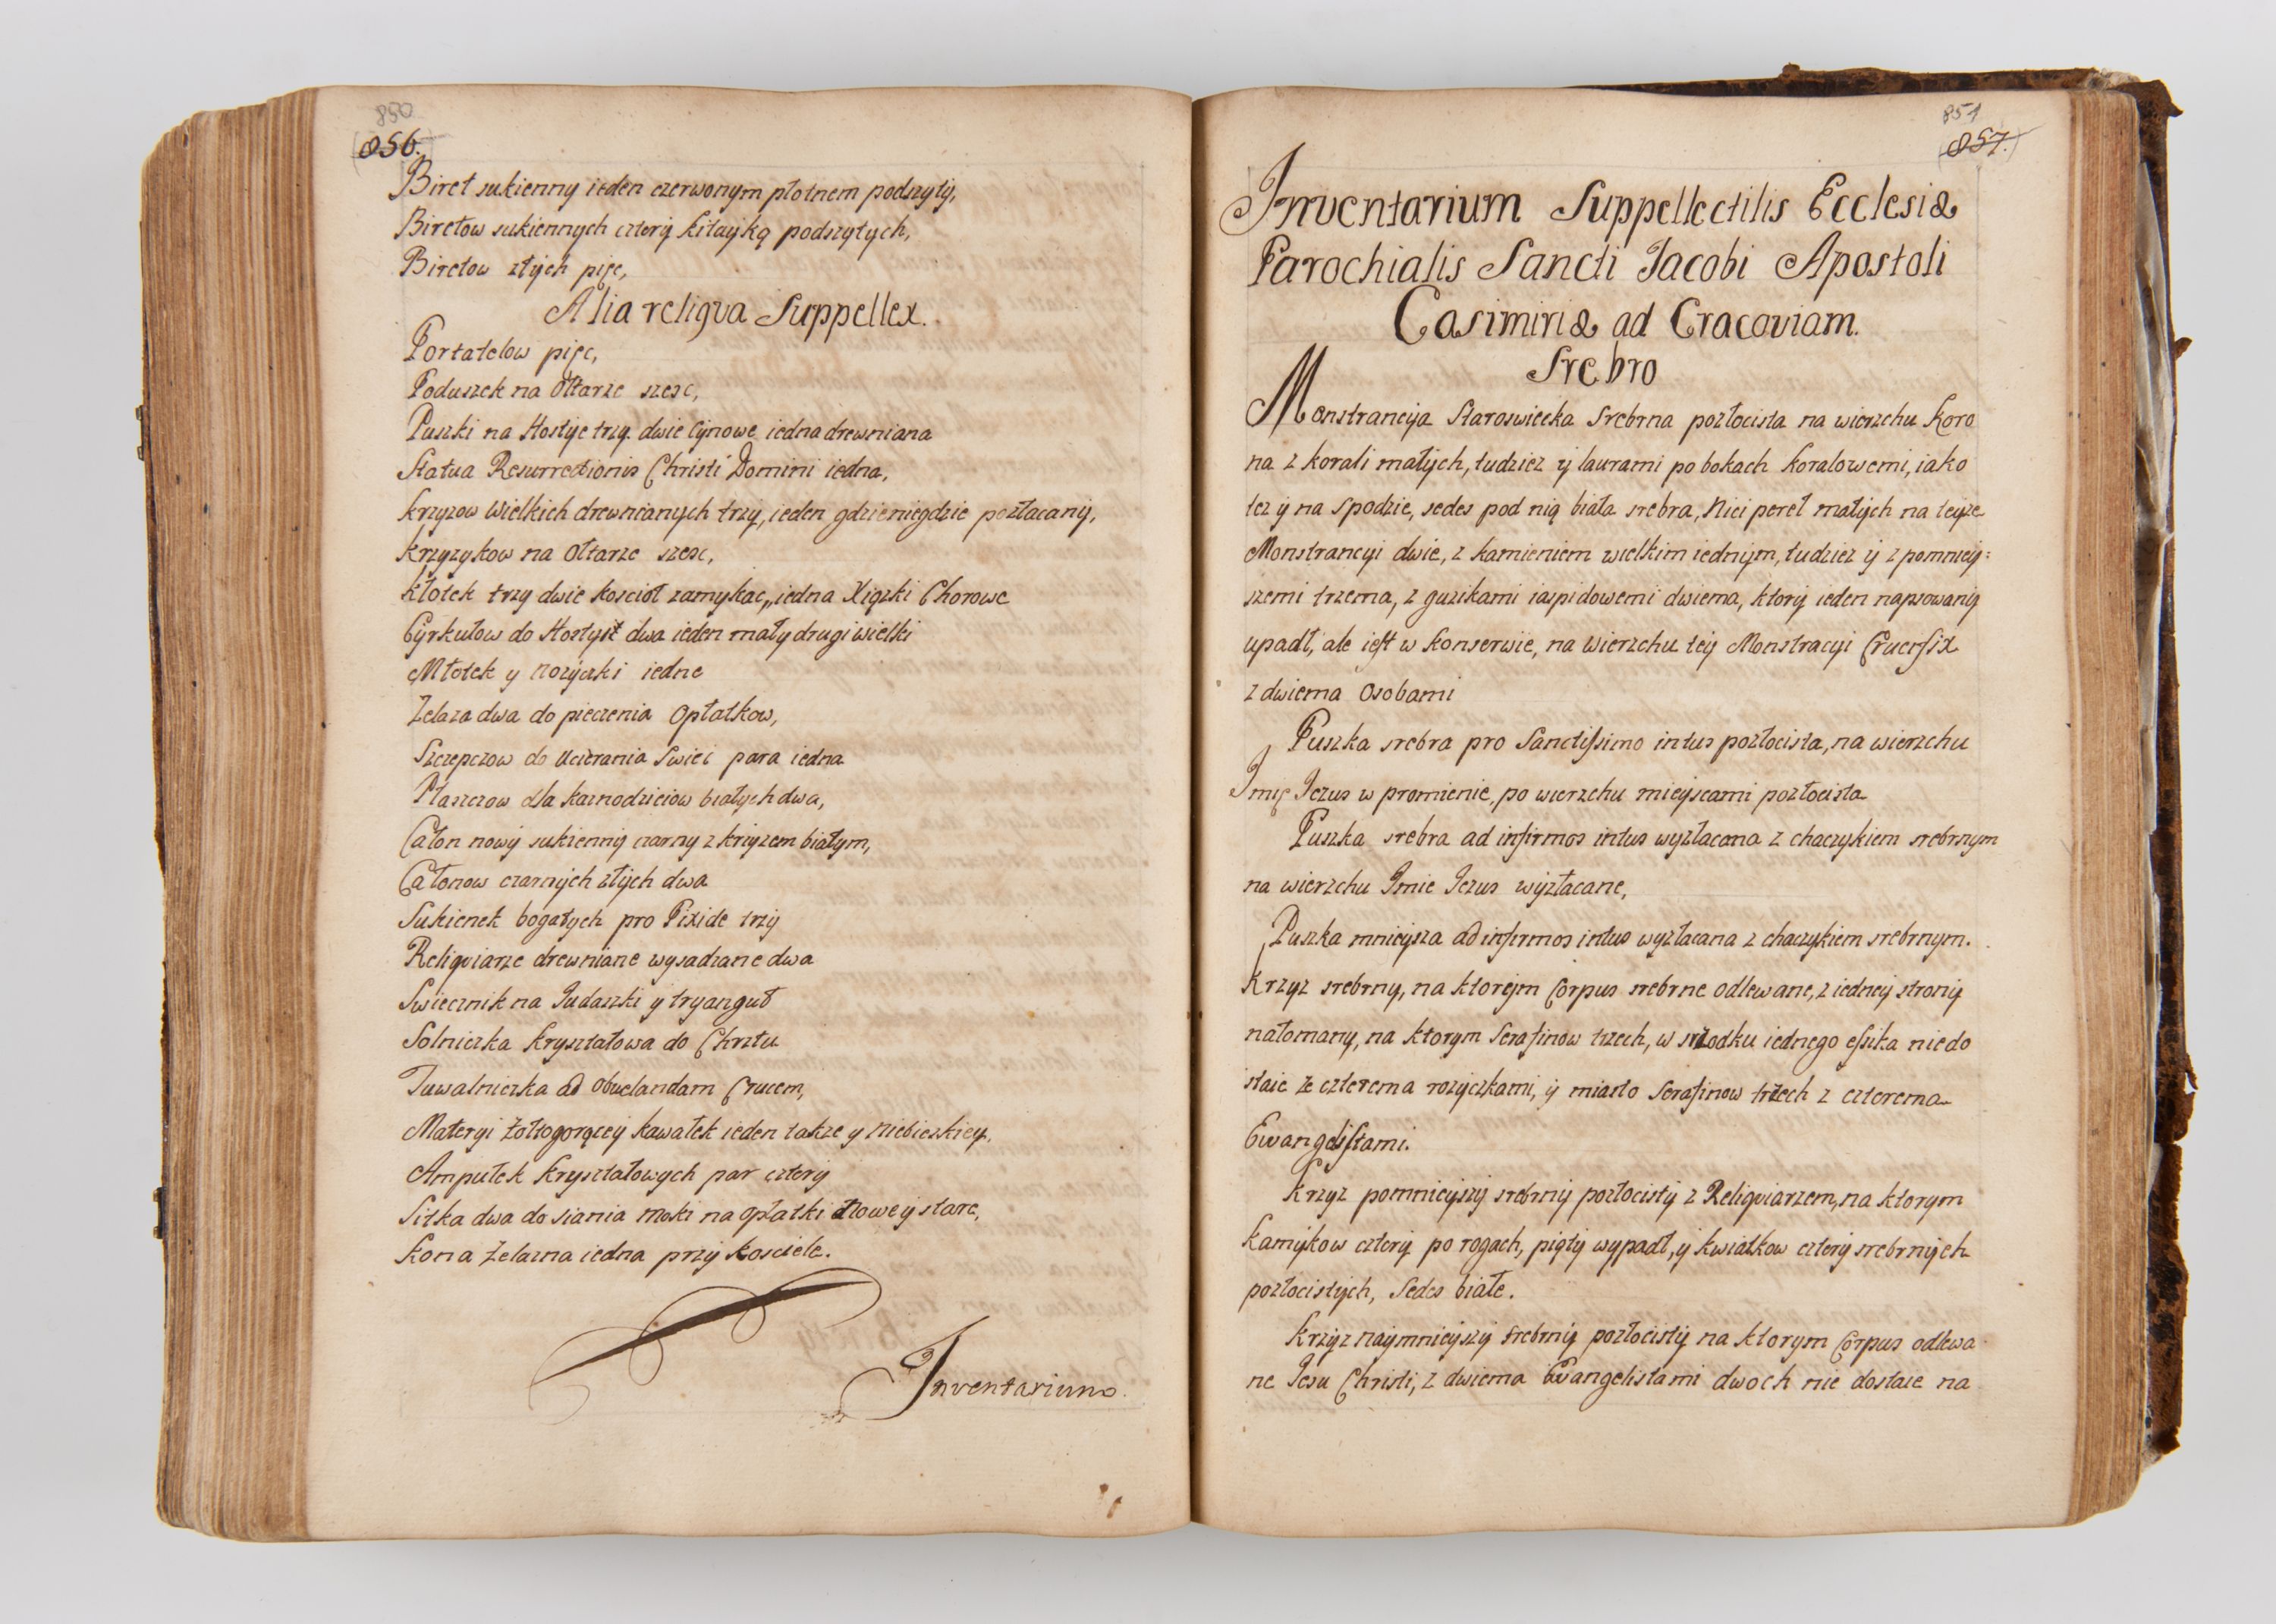 850
856.
Biret sukienny ieden czerwonym płotnem podszyty,
Biretow sukiennych cztery kitayką podszytych,
Biretow złych pięc,
Alia reliqva Suppellex.
Portatelow pięc,
Poduszek na Ołtarze szesc,
Puszki na Hostye trzy. dwie Cynowe iedna drewniana
Statua Resurrectionis Christi Domini iedna,
Krzyzow Wielkich drewnianych trzy, ieden gdzieniegdzie pozłacany,
Krzyzykow na Ołtarze szesc,
Kłotek trzy dwie Koscioł zamykac, iedna Xiązki Chorowe
Cyrkułow do Hostyi dwa ieden mały drugi wielki
Młotek y nozyczki iedne
Zelaza dwa do pieczenia Opłatkow,
Szczepczow do Ucierania Swiec para iedna
Płaszczow dla Kaznodzieiow białych dwa,
Całon nowy sukienny czarny z krzyzem białym,
Całonow czarnych złych dwa
Sukienek bogatych pro Pixide trzy
Religviarze drewniane wysadzane dwa
Swiecznik na Judaszki y tryanguł
Solniczka Kryształowa do Chrztu
Tuwalniczka ad Obvelandam Crucem,
Materyi Zołtogorącey kawałek ieden także y niebieskiey,
Ampułek Kryształowych par cztery
Sitka dwa do siania Mąki na opłatki nowe y stare,
Kona Zelazna iedna przy Kosciele.
Inventarium.
851
857.
Inventarium Suppellectilis Ecclesiæ
Parochialis Sancti Jacobi Apostoli
Casimiriæ ad Cracoviam.
Srebro
Monstrancya Staroswiecka Srebrna pozłocista na wierzchu Koro
na z korali małych, tudziez y laurami po bokach Koralowemi, iako
tez y na spodzie, sedes pod nią biała srebra, Nici pereł małych na teyze
Monstrancyi dwie, z kamieniem wielkim iednym, tudziez y z pomniey:
szemi trzema, z guzikami iaspidowemi dwiema, ktory ieden napsowany
upadł, ale iest w Konserwie, na wierzchu tey Monstracyi Crucifix
z dwiema Osobami
Puszka srebra pro Sanctissimo intus pozłocista, na wierzchu
Imię Jezus w promienie, po wierzchu mieyscami pozłocista
Puszka srebra ad infirmos intus wyzłacana z chaczykiem srebrnym
na wierzchu Imie Jezus wyzłacane,
Puszka mnieysza ad infirmos intus wyzłacana z chaczykiem srebrnym.
Krzyz srebrny, na ktorejm Corpus srebrne odlewane, z iedney strony
nałomany, na ktorym Serafinow trzech, w srzodku iednego essika niedo
staie ze czterema rozyczkami, y miasto Serafinow trzech z czterema
Ewangelistami.
Krzyz pomnieyszy srebrny pozłocisty z Religviarzem, na ktorym
Kamykow cztery po rogach, piąty wypadł, y kwiatkow cztery srebrnych
pozłocistych, Sedes białe.
Krzyz naymnieyszy srebrny pozłocisty na ktorym Corpus odlewa
ne Jesu Christi, z dwiema Ewangelistami dwoch nie dostaie na